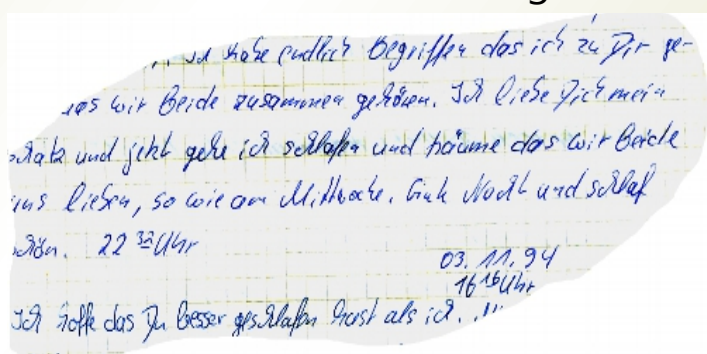 ich habe endlich Begriffen das ich zu Dir ge-
das wir Beide zusammen gehören. Ich liebe Dich mein
schatz und jetzt gehe ich schlafen und träume das wir Beide
uns lieben, so wie am Mittwoche. Gute Nacht und schlaf
schön. 22 32 Uhr
03.11.94
16 16 Uhr
Ich hoffe das Du besser geschlafen hast als ich. .!!!